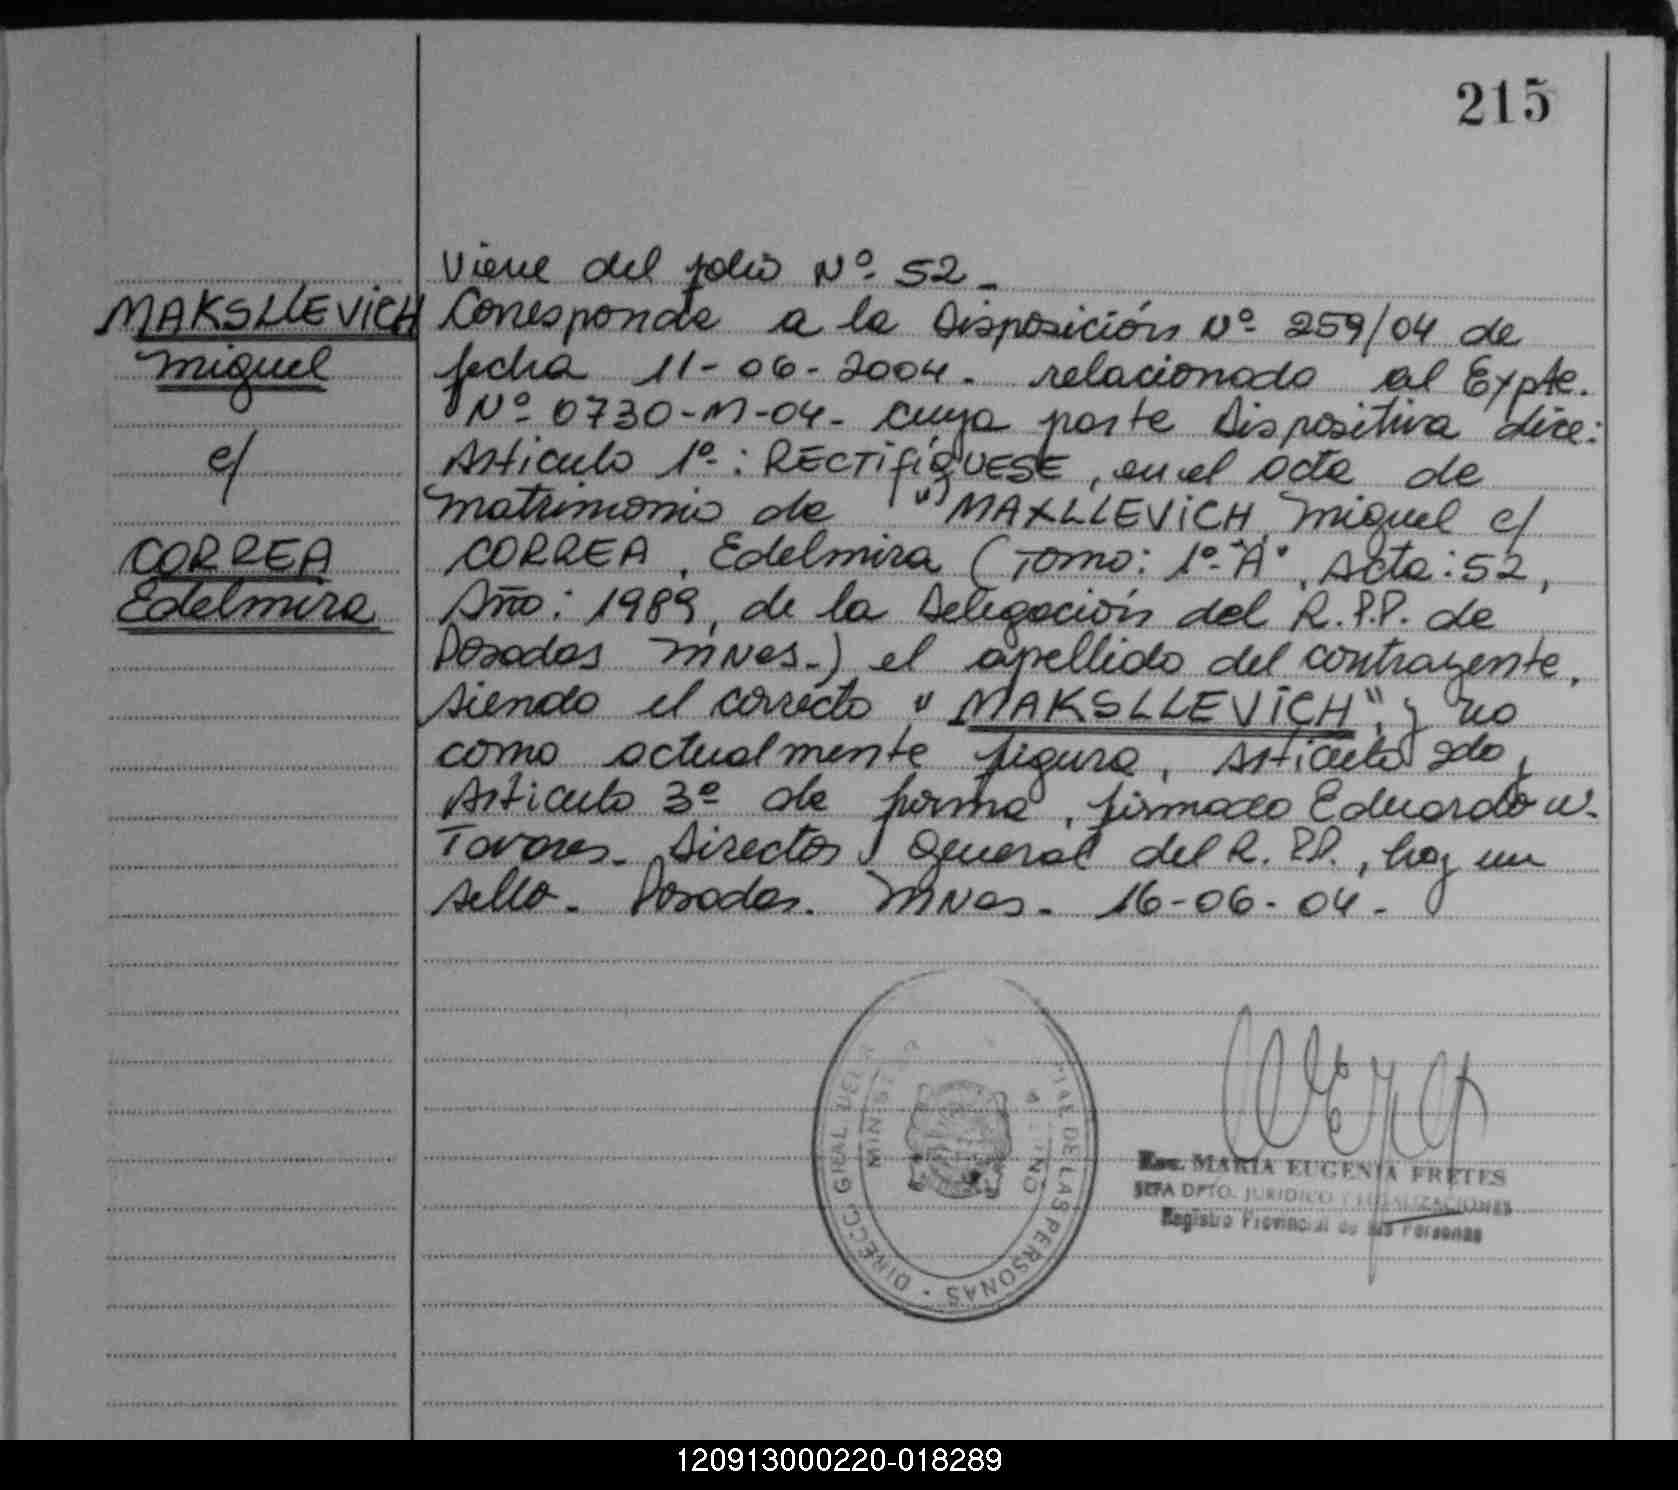 215
Viene del folio Nº 52 -
MAKSLLEVICH
Miguel
c/
CORREA
Edelmira
Corresponde a la Disposición Nº 259/04 de
fecha 11-06-2004. relacionado al Expte.
Nº 0730-M-04- cuya parte Dispositiva dice:
Articulo 1º: RECTIFÍQUESE, en el acta de
matrimonio de "MAXLLEVICH, Miguel c/
CORREA, Edelmira (Tomo: 1º "A", Acta: 52,
Año: 1989, de la Delegación del R.P.P. de
Posadas Mnes.) el apellido del contrayente,
siendo el correcto "MAKSLLEVICH", y no
como actualmente figura, Articulo 2do,
Articulo 3º de forma, firmado Eduardo W.
Tavares. Director General del R.P.P., hay un
sello. Posadas. Mnes. 16-06-04.
DIRECC. GRAL. DEL
DE LAS PERSONAS
Esc. MARIA EUGENIA FRETES
JEFA DPTO. JURIDICO Y LEGALIZACIONES
Registro Provincial de las Personas
120913000220-018289